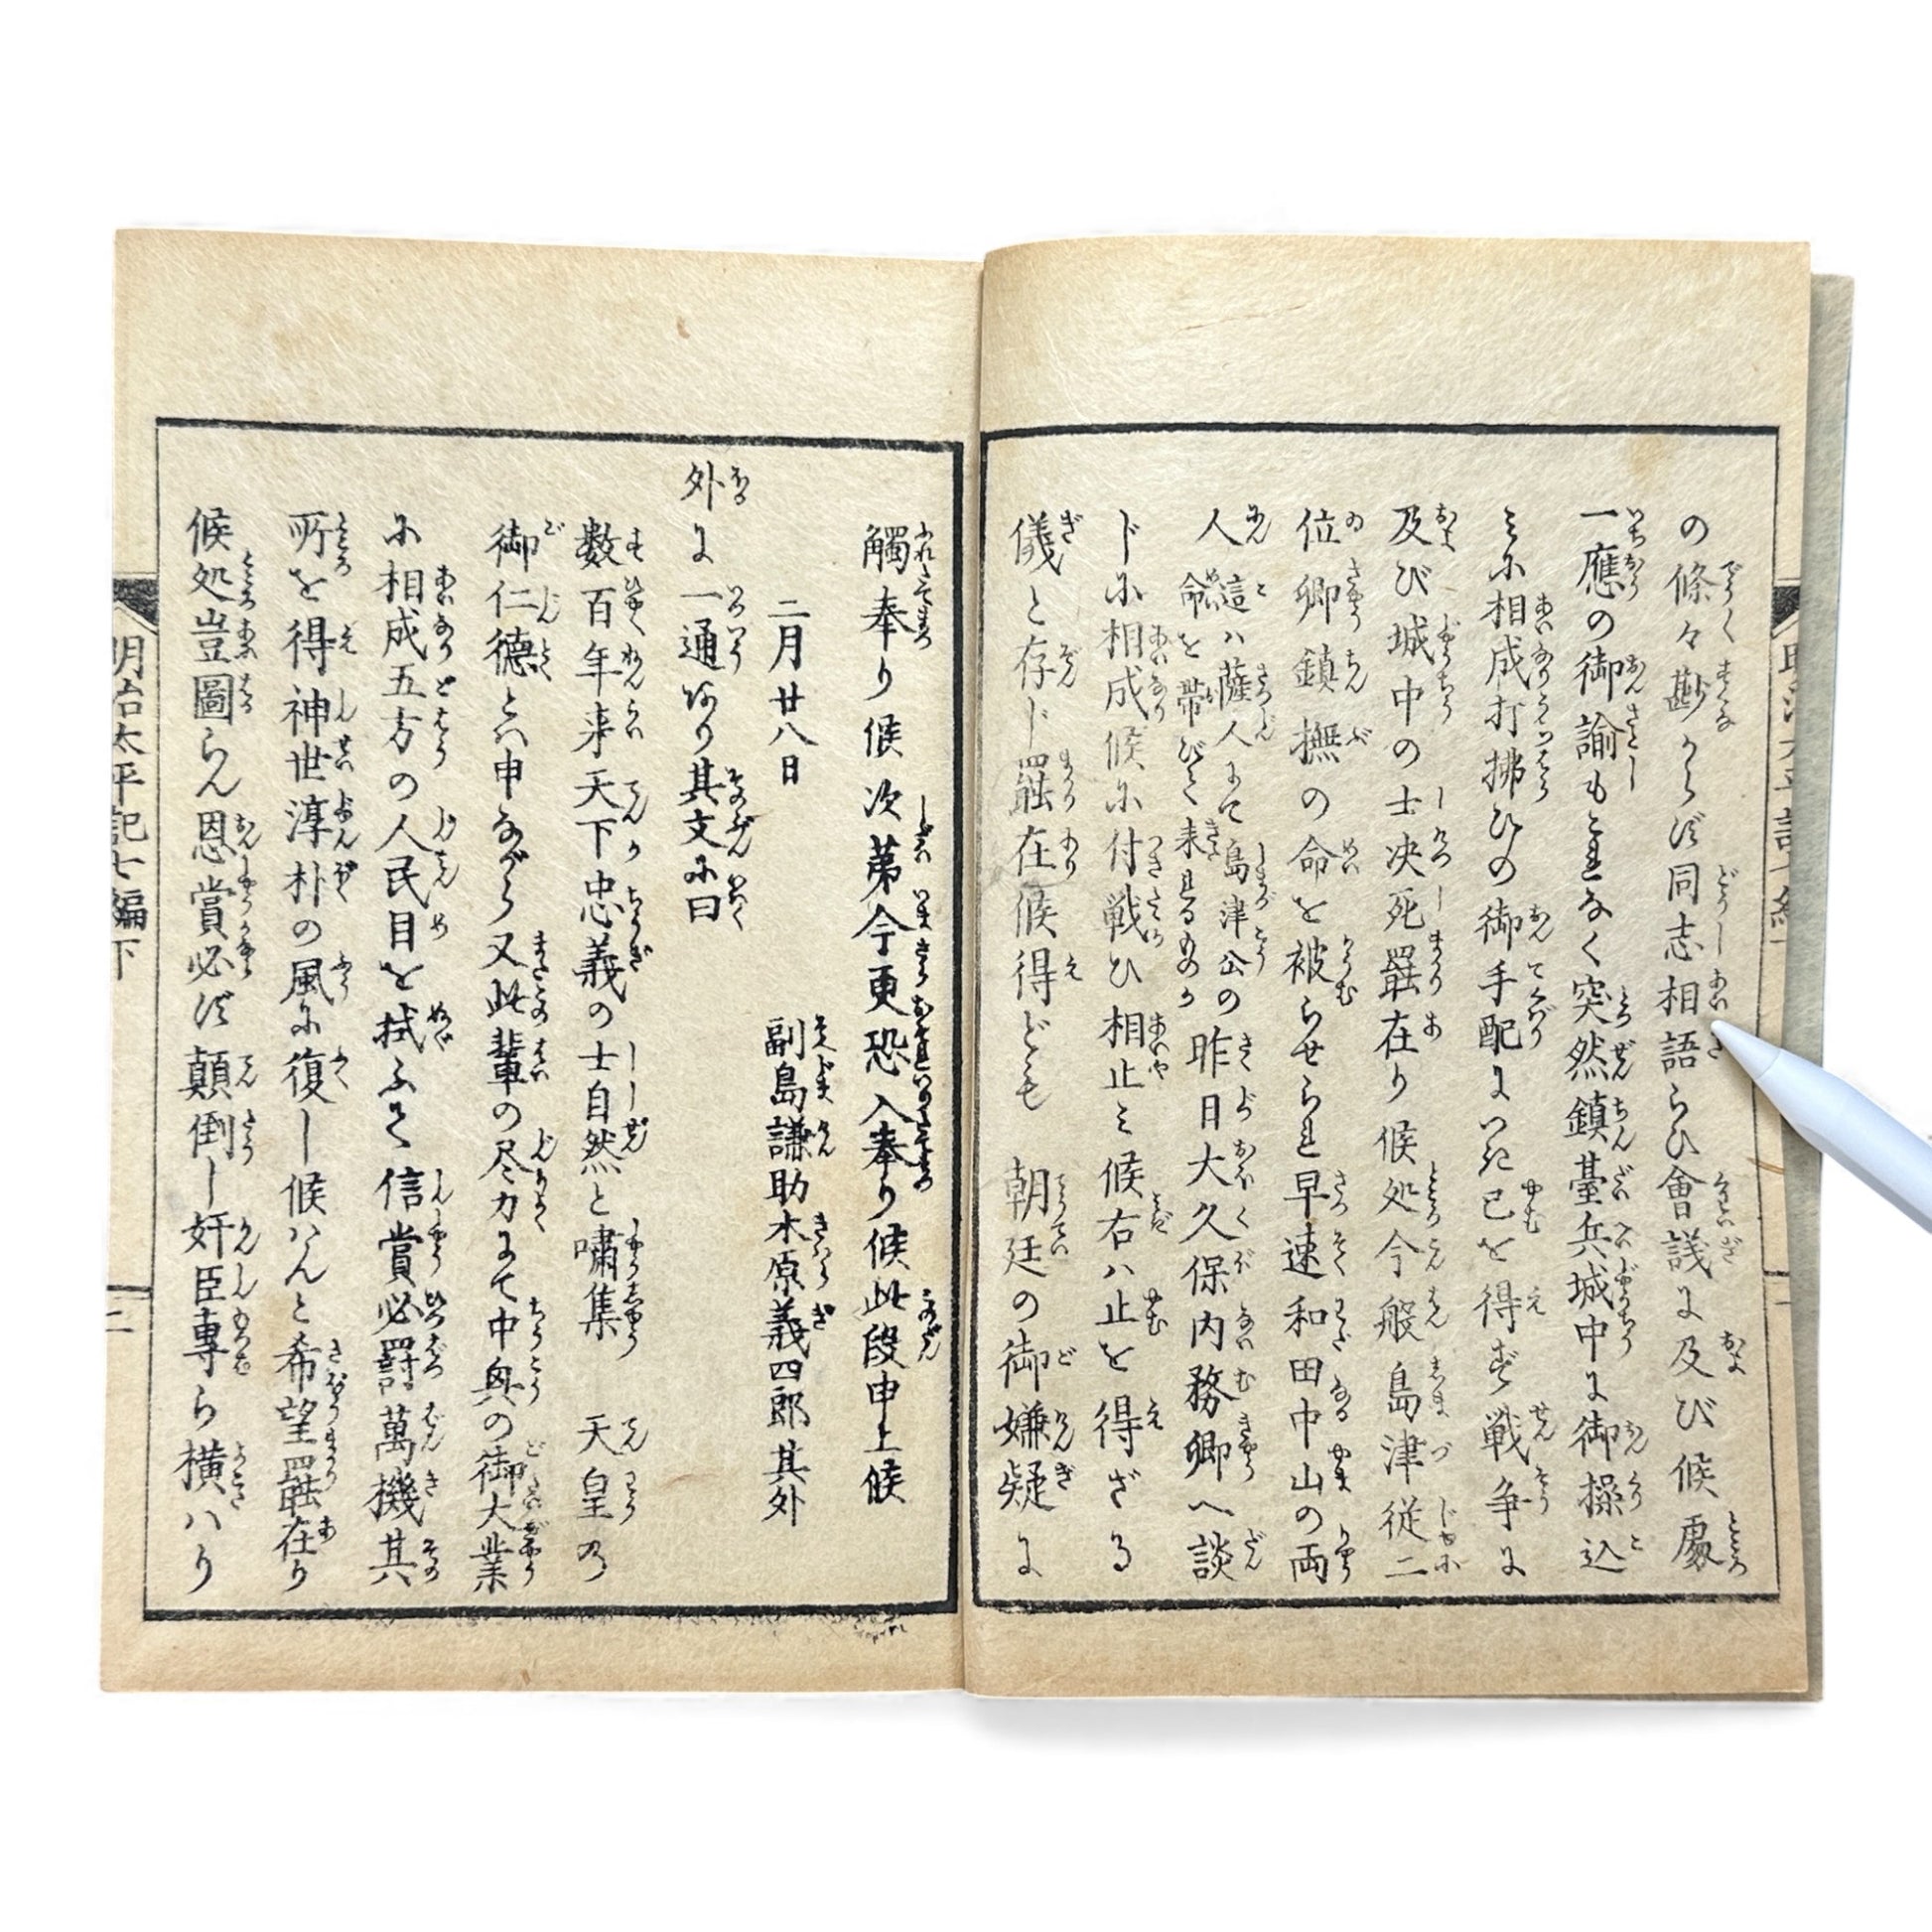 の條々尠からず同志相語らひ會議に及び候處
一應の御諭もこれなく突然鎮臺兵城中に御操込
ミに相成打拂ひの御手配につき已を得ず戦争に
及び城中の士决死罷在り候処今般島津従二
位卿鎮撫の命を被らせられ早速和田中山の両
人這ハ薩人にて島津公の命を帯びて来れるものか昨日大久保内務卿へ談
じに相成候に付戦ひ相止ミ候右ハ止を得ざる
儀と存じ罷在候得ども 朝廷の御嫌疑に
觸奉り候次第今更恐入奉り候此段申上候
二月廿八日
副島謙助木原義四郎其外
外に一通あり其文に曰
数百年来天下忠義の士自然と嘯集 天皇の
御仁德とハ申ながら又此輩の尽力にて中興の御大業
に相成五方の人民目を拭ふて信賞必罸萬機其
所を得神世淳朴の風に復し候はんと希望罷在り
候処豈圖らん恩賞必ず顛倒し奸臣専ら横ハり
明治太平記七編下
二